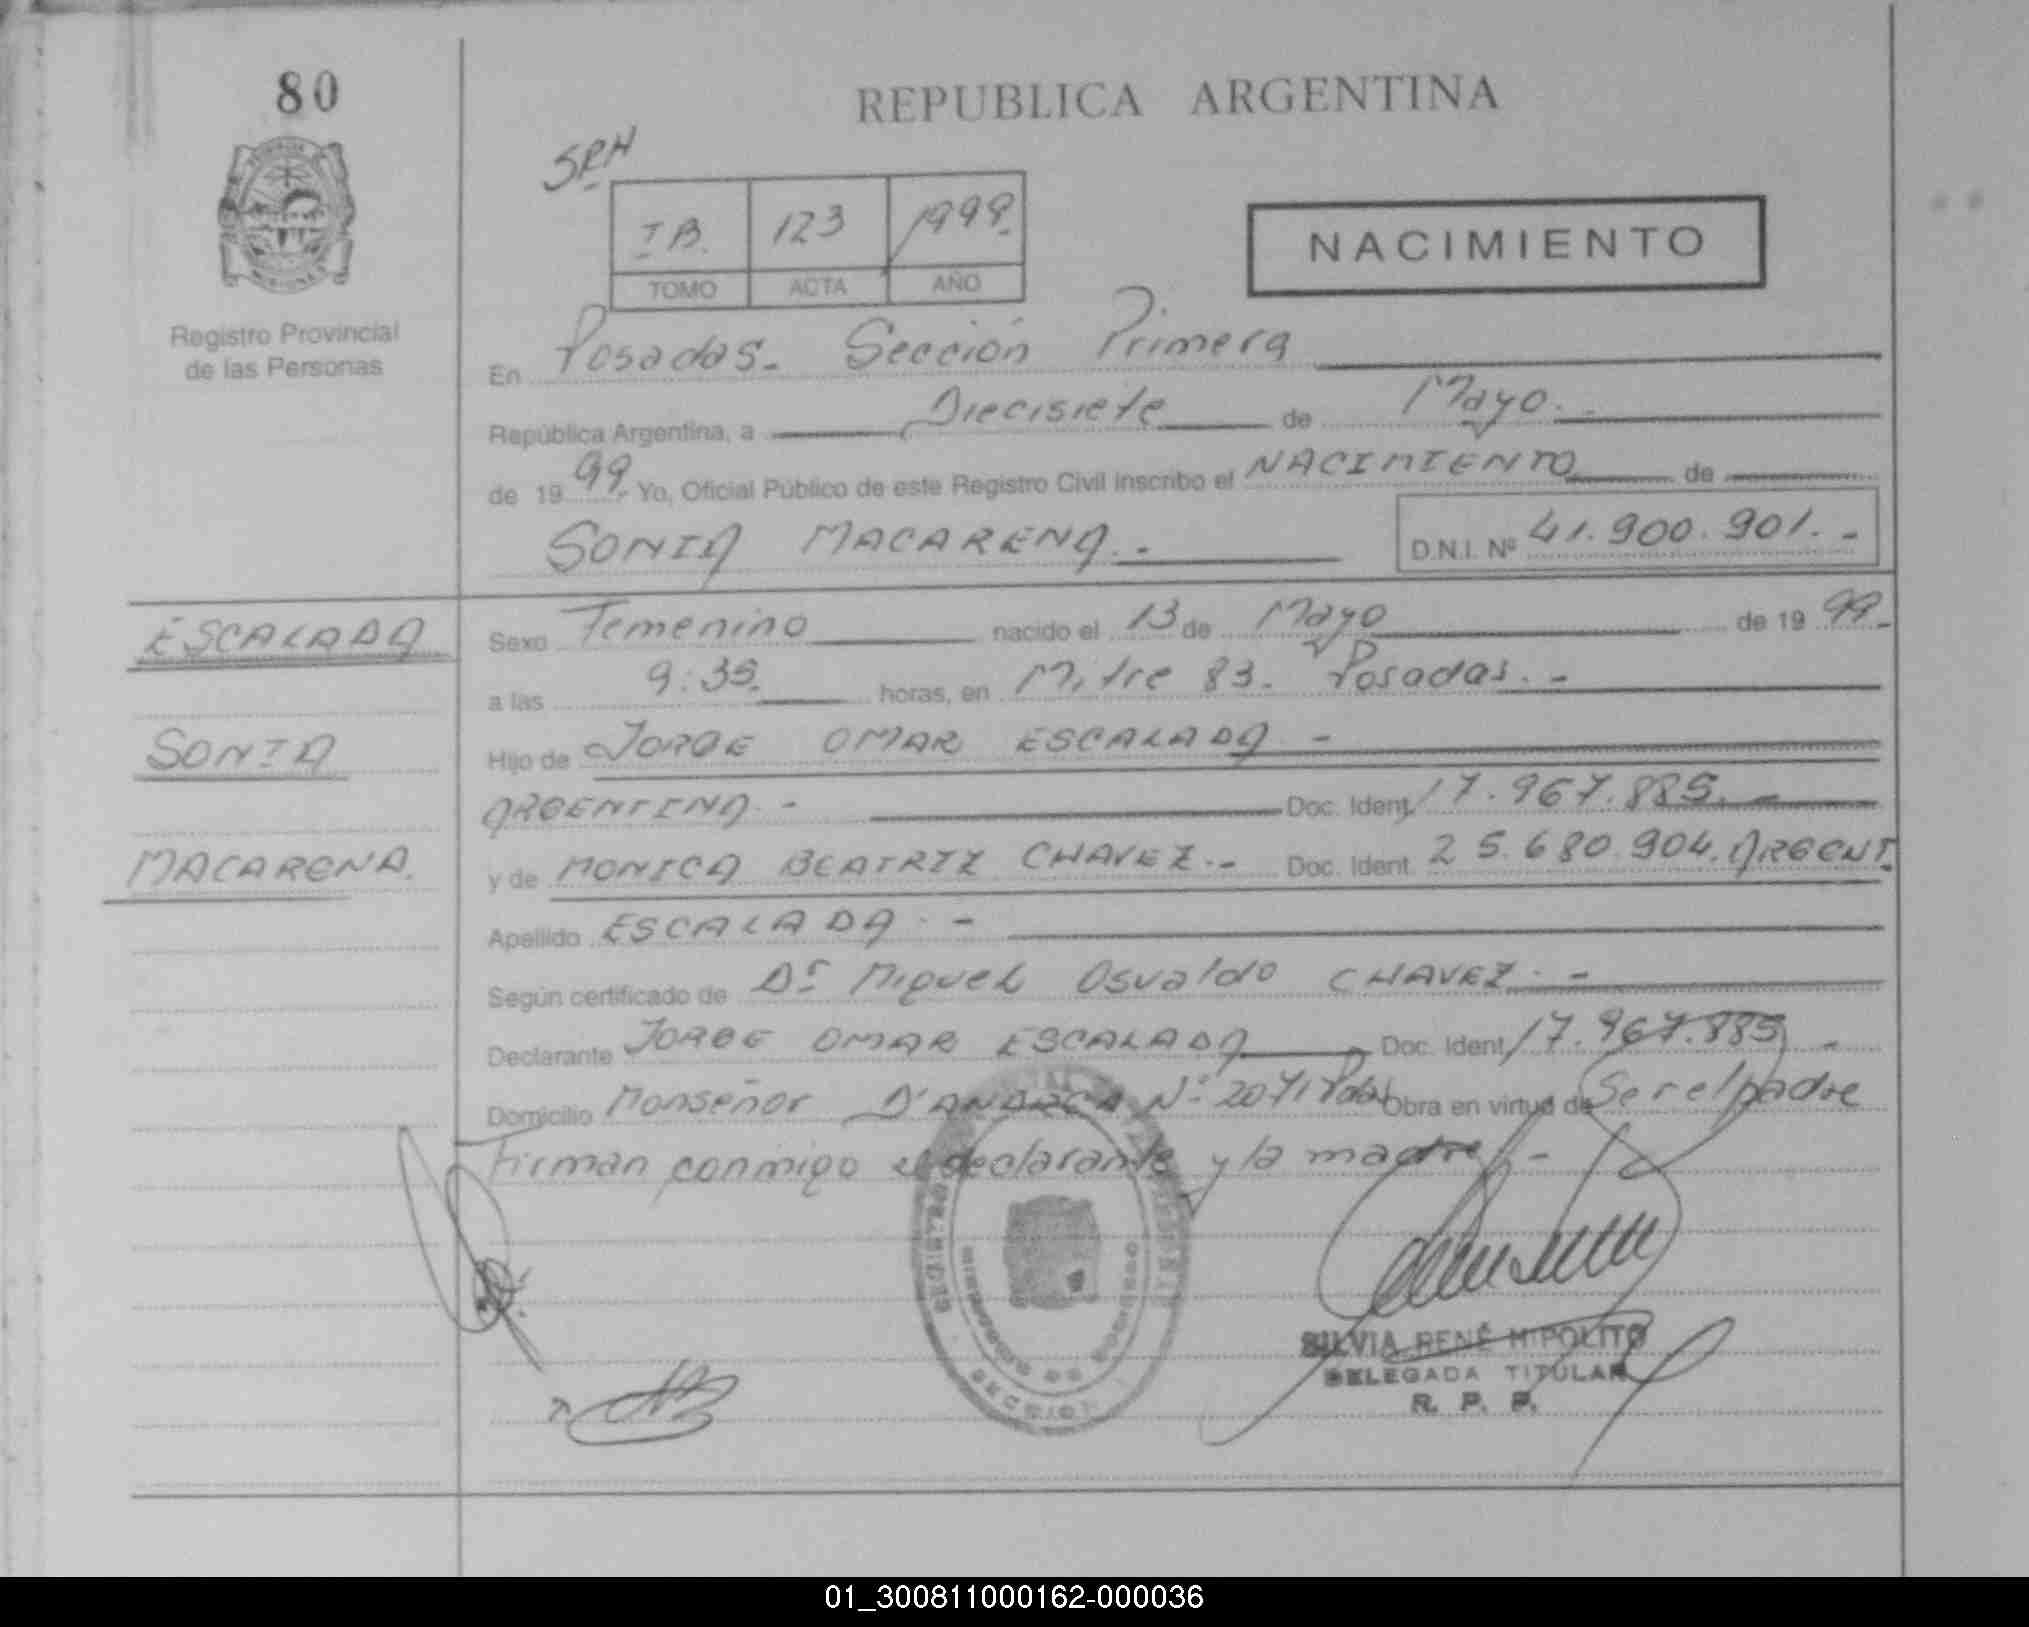 80
REPUBLICA ARGENTINA
SRH
I B. 123 1999.
TOMO ACTA AÑO
NACIMIENTO
Registro Provincial
de las Personas
En Posadas. Sección Primera
República Argentina, a Diecisiete de Mayo.
de 19 99. Yo, Oficial Público de este Registro Civil inscribo el NACIMIENTO de
SONIA MACARENA.- D.N.I. Nº 41.900.901.-
ESCALADA
SONIA
MACARENA.
Sexo Femenino nacido el 13 de Mayo de 19 99.
a las 9:35. horas, en Mitre 83. Posadas.-
Hijo de JORGE OMAR ESCALADA -
ARGENTINA.- Doc. Ident. 17.967.885.-
y de MONICA BEATRIZ CHAVEZ.- Doc. Ident. 25.680.904. ARGENT.
Apellido ESCALADA.-
Según certificado de Dr Miguel Osvaldo CHAVEZ.-
Declarante JORGE OMAR ESCALADA Doc. Ident. 17.967.885 -
Domicilio Monseñor D'ANDREA Nº 2071 Pdas Obra en virtud de Ser el padre
Firman conmigo el declarante y la madre.-
SILVIA RENÉ HIPOLITO
DELEGADA TITULAR
R. P. P.
01_300811000162-000036